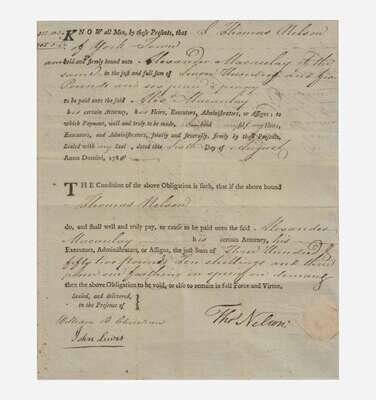 KNOW all Men, by these Presents, that I Thomas Nelson
of York Town
am held and firmly bound unto Alexander Macaulay of the
same in the just and full sum of Seven Hundred and
Pounds and
to be paid unto the said Alex Macaulay
his certain Attorney, his Heirs, Executors, Administrators, or Assigns; to
which Payment, well and truly to be made, I bind myself my Heirs,
Executors, and Administrators, jointly and severally, firmly by these Presents,
Sealed with my Seal, dated this Day of August
Anno Domini, 178
THE Condition of the above Obligation is such, that if the above bound
Thomas Nelson
do, and shall well and truly pay, or cause to be paid unto the said Alexander
Macaulay his certain Attorney, his
Executors, Administrators, or Assigns, the just Sum of Three Hundred &
fifty two pounds Ten shillings and
one farthing in specie on demand
then the above Obligation to be void, or else to remain in full Force and Virtue.
Sealed, and delivered,
in the Presence of
William
John
Thos Nelson